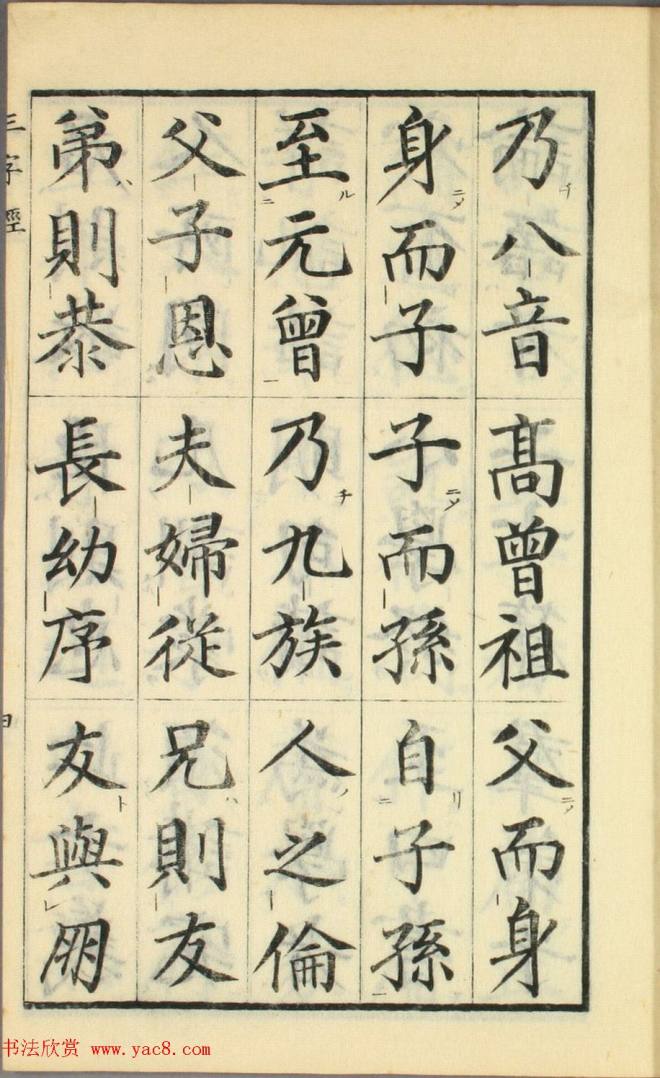 乃八音 高曾祖 父而身
身而子 子而孫 自子孫
至元曾 乃九族 人之倫
父子恩 夫婦從 兄則友
弟則恭 長幼序 友與朋
三字經
书法欣赏 www.yac8.com